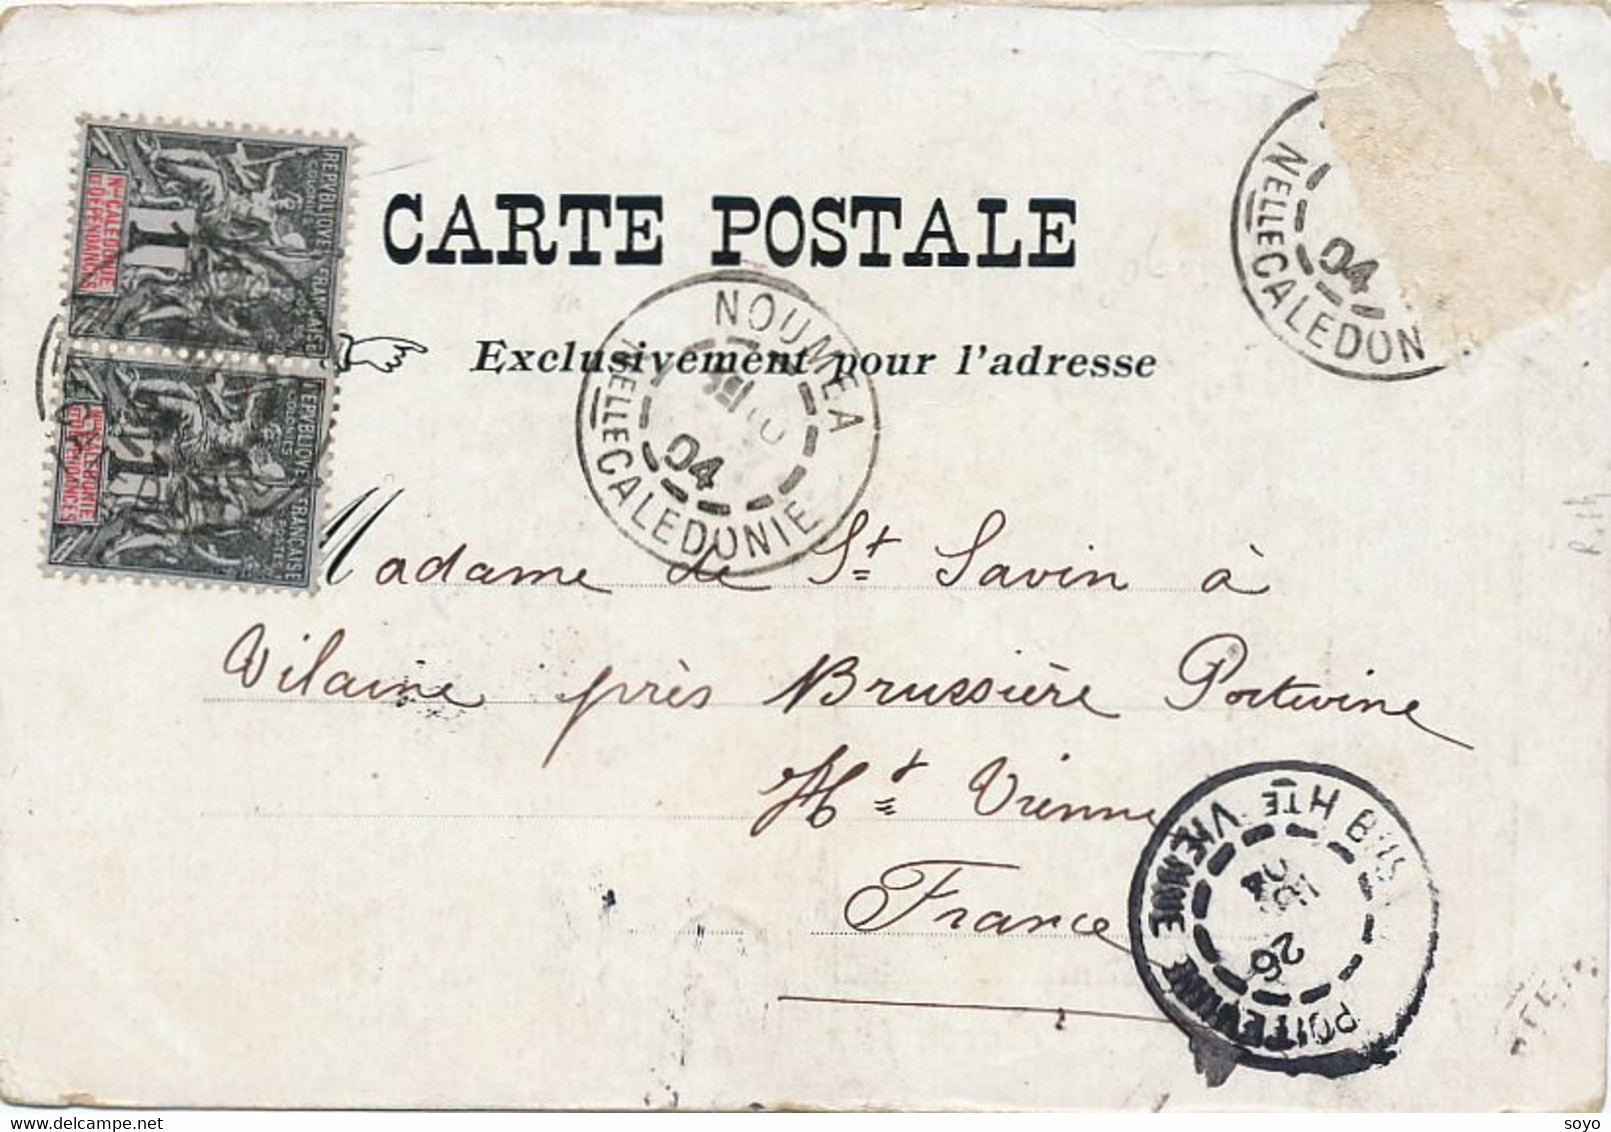 CARTE POSTALE
Exclusivement pour l'adresse
REPVBLIQVE FRANÇAISE
COLONIES
POSTES
1
Nlle CALEDONIE
ET DEPENDANCES
REPVBLIQVE FRANÇAISE
COLONIES
POSTES
1
Nlle CALEDONIE
ET DEPENDANCES
NOUMEA
04
NELLE CALEDONIE
04
NELLE CALEDON
Madame de St Savin à
Vilaine près Brussière Poitevine
Hte Vienne
France
POITEVINE HTE VIENNE
26
04
soyo